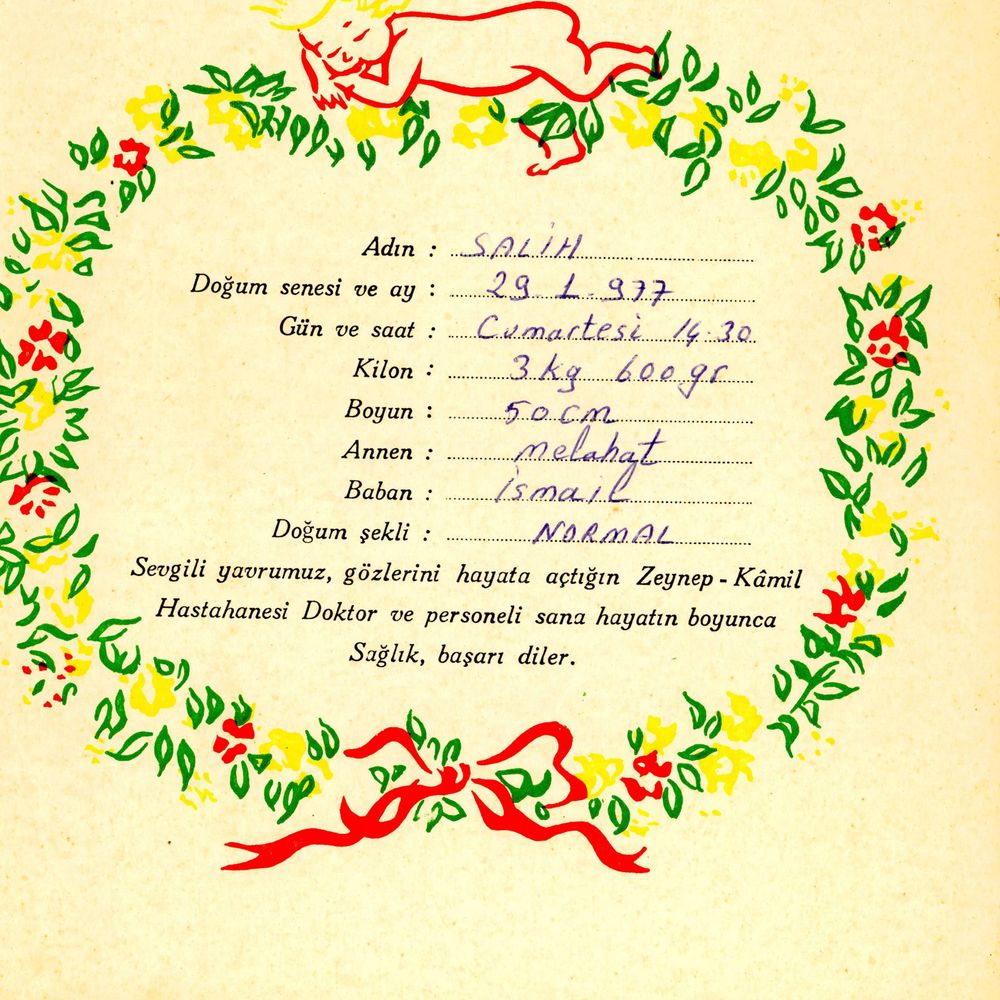 Adın : SALİH
Doğum senesi ve ay : 29.1.977
Gün ve saat : Cumartesi 14.30
Kilon : 3 kg 600 gr
Boyun : 50 cm
Annen : melahat
Baban : ismail
Doğum şekli : NORMAL
Sevgili yavrumuz, gözlerini hayata açtığın Zeynep - Kâmil
Hastahanesi Doktor ve personeli sana hayatın boyunca
Sağlık, başarı diler.